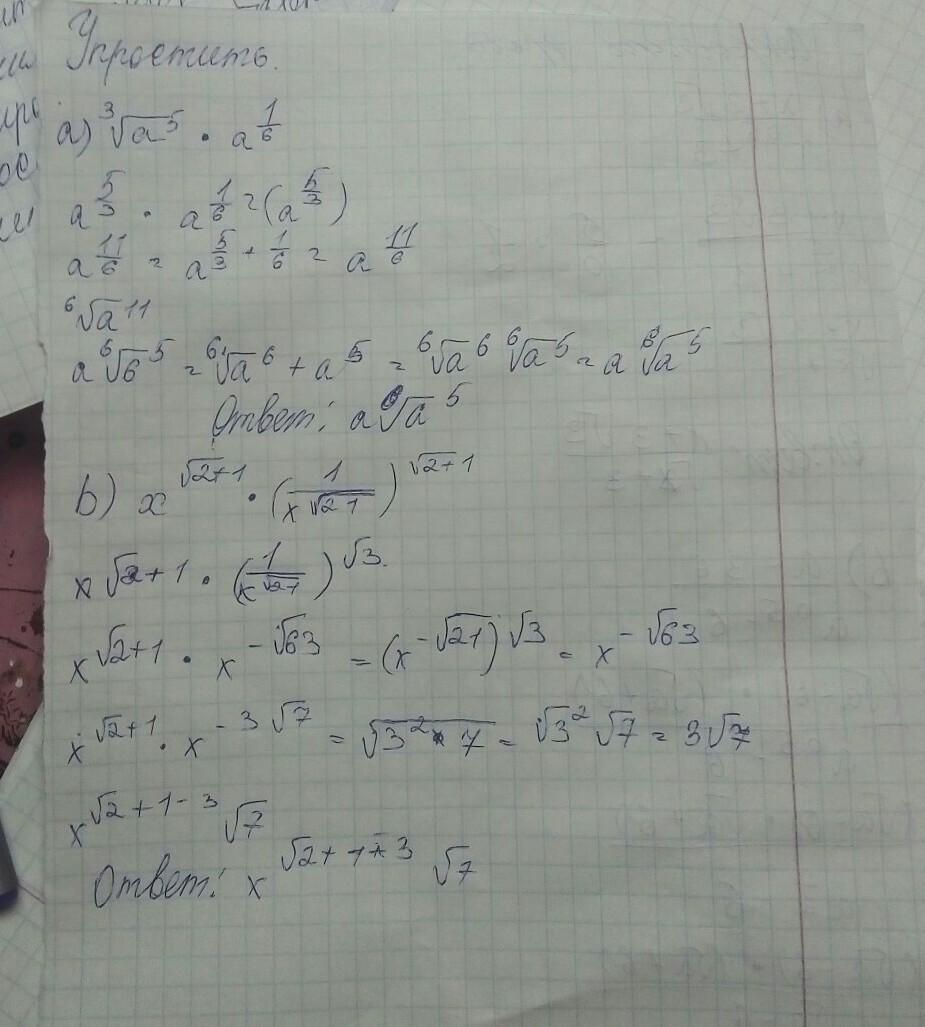 Упростить.
a) ³√a⁵ · a^(1/6)
a^(5/3) · a^(1/6) = (a^(5/3))
a^(11/6) = a^(5/3 + 1/6) = a^(11/6)
⁶√a¹¹
a ⁶√6⁵ = ⁶√a⁶ + a⁵ = ⁶√a⁶ ⁶√a⁵ = a ⁶√a⁵
Ответ: a ⁶√a⁵
b) x^(√2+1) · (1/x^(√21))^(√2+1)
x√2+1 · (1/x^(√21))^(√3).
x^(√2+1) · x^(-√63) = (x^(-√21))^(√3) = x^(-√63)
x^(√2+1) · x^(-3√7) = √(3²×7) = √3² √7 = 3√7
x^(√2+1-3) √7
Ответ: x^(√2+1-3) √7